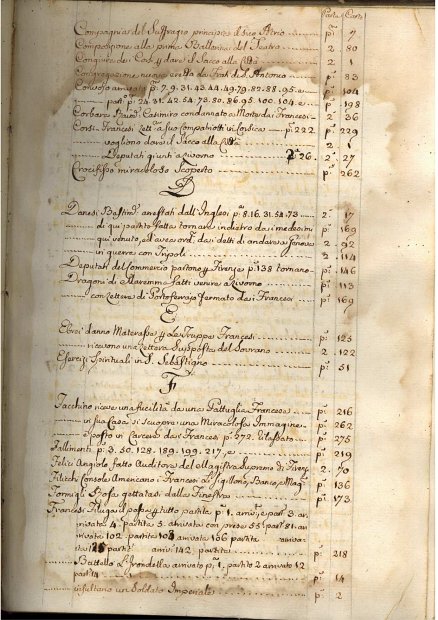 Parte Carte
Compagnia del Suffragio principia il suo Atrio pª 7
Composizione alla prima Ballerina del Teatro 2 80
Congiura dei Corsi y dare il Sacco alla Città 2 1
Congregazione nuova eretta da Frati di S. Antonio pª 83
Convoglio arrivato pª 7. 9. 31. 43. 44. 49. 79. 82. 88. 95. e pª 104
partº pª 24. 31. 42. 54. 73. 80. 86. 95. 100. 104. e pª 198
Casimiro condannato a Morte dai Francesi 2 36
Corsi Francesi Lettª a suo Compatriotti in Corsica pª 222 pª 229
vogliono dare il Sacco alla Città 2 1
Deputati giunti a Livorno 2ª 26 2 27
Crocifisso miracoloso Scoperto pª 262
D
Danesi Bastimti arrestati dall'Inglesi pª 8. 16. 31. 54. 73 2 17
di qui partito fatto tornare indietro da i medesimi pª 169
qui venuto, ed aver ordª da i detti di andare a Genova 2 92
in guerra con Tripoli 2 114
Deputati del Commercio partono y Firenze pª 138 tornano pª 146
Dragoni di Maremma fatti venire a Livorno pª 113
con Lettere di Portoferrajo fermato dai Francesi pª 169
E
Ebrei danno Materasse y Le Truppe Francesi pª 125
ricevono una Lettera Supposta del Sovrano 2 122
Esercizi Spirituali in S. Sebastiano pª 51
F
Facchino riceve una fucilata da una Pattuglia Francese pª 216
in sua Casa si scuopre una Miracolosa Immagine pª 262
è posto in Carcere dai Francesi pª 272. rilassato pª 275
Fallimenti pª 3. 50. 128. 189. 199. 217. e pª 219
Felici Angiolo fatto Auditore del Magistro Supremo di Firenze 2 70
Filicchi Console Americano i Francesi Le Sigillono, Banco, e Mag. pª 136
Formiq Rosa gettatasi dalla Finestra pª 173
Francesi Filuga il papa y tutto partita pª 1. arrivª e partª 3. ar
rivata 4. partita 5. arrivata con prese 55. partª 81. ar
rivata 102. partita 104 arrivata 106 partita arriva
ta 125 partª arrivª 142 partita pª 218
Battello L'Irondella arrivato pª 1. partito 2 arrivato 12
partª 14 pª 14
insultano un Soldato Imperiale pª 2